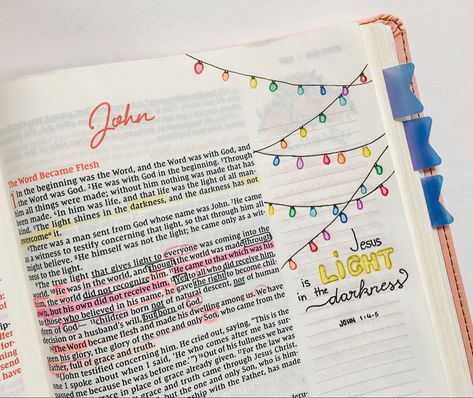 John
The Word Became Flesh
1 In the beginning was the Word, and the Word was with God, and
the Word was God. 2He was with God in the beginning. 3Through
him all things were made; without him nothing was made that has
been made. 4In him was life, and that life was the light of all man-
kind. 5The light shines in the darkness, and the darkness has not
overcome it.
There was a man sent from God whose name was John. 7He came
as a witness to testify concerning that light, so that through him all
might believe. 8He himself was not the light; he came only as a wit-
ness to the light.
9The true light that gives light to everyone was coming into the
world. 10He was in the world, and though the world was made through
him, the world did not recognize him. 11He came to that which was his
own, but his own did not receive him. 12Yet to all who did receive him,
to those who believed in his name, he gave the right to become chil-
dren of God— 13children born not of natural descent, nor of human
decision or a husband's will, but born of God.
14The Word became flesh and made his dwelling among us. We have
seen his glory, the glory of the one and only Son, who came from the
Father, full of grace and truth.
15(John testified concerning him. He cried out, saying, "This is the
one I spoke about when I said, 'He who comes after me has sur-
passed me because he was before me.'") 16Out of his fullness we have
all received grace in place of grace already given. 17For the law was
given through Moses; grace and truth came through Jesus Christ.
God, but the one and only Son, who is him-
relationship with the Father, has made
Jesus
is LIGHT
in the darkness
JOHN 1:4-5